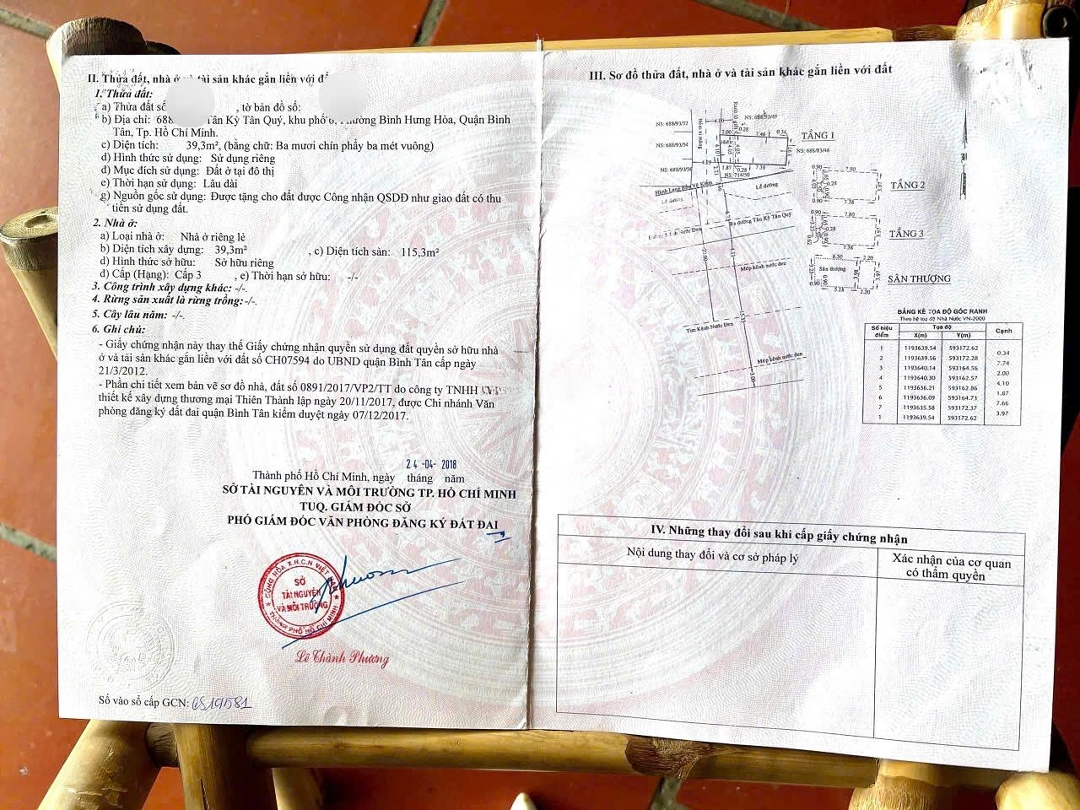 II. Thửa đất, nhà ở và tài sản khác gắn liền với đất
1. Thửa đất:
a) Thửa đất số , tờ bản đồ số:
b) Địa chỉ: 688 Tân Kỳ Tân Quý, khu phố 6, Phường Bình Hưng Hòa, Quận Bình
Tân, Tp. Hồ Chí Minh.
c) Diện tích: 39,3m², (bằng chữ: Ba mươi chín phẩy ba mét vuông)
d) Hình thức sử dụng: Sử dụng riêng
đ) Mục đích sử dụng: Đất ở tại đô thị
e) Thời hạn sử dụng: Lâu dài
g) Nguồn gốc sử dụng: Được tặng cho đất được Công nhận QSDĐ như giao đất có thu
tiền sử dụng đất.
2. Nhà ở:
a) Loại nhà ở: Nhà ở riêng lẻ
b) Diện tích xây dựng: 39,3m² , c) Diện tích sàn: 115,3m²
d) Hình thức sở hữu: Sở hữu riêng
đ) Cấp (Hạng): Cấp 3 , e) Thời hạn sở hữu: -/-
3. Công trình xây dựng khác: -/-.
4. Rừng sản xuất là rừng trồng: -/-.
5. Cây lâu năm: -/-.
6. Ghi chú:
- Giấy chứng nhận này thay thế Giấy chứng nhận quyền sử dụng đất quyền sở hữu nhà
ở và tài sản khác gắn liền với đất số CH07594 do UBND quận Bình Tân cấp ngày
21/3/2012.
- Phần chi tiết xem bản vẽ sơ đồ nhà, đất số 0891/2017/VP2/TT do công ty TNHH
thiết kế xây dựng thương mại Thiên Thành lập ngày 20/11/2017, được Chi nhánh Văn
phòng đăng ký đất đai quận Bình Tân kiểm duyệt ngày 07/12/2017.
24 -04- 2018
Thành phố Hồ Chí Minh, ngày tháng năm
SỞ TÀI NGUYÊN VÀ MÔI TRƯỜNG TP. HỒ CHÍ MINH
TUQ. GIÁM ĐỐC SỞ
PHÓ GIÁM ĐỐC VĂN PHÒNG ĐĂNG KÝ ĐẤT ĐAI
CỘNG HÒA X.H.C.N VIỆT
SỞ
TÀI NGUYÊN
VÀ MÔI TRƯỜNG
THÀNH PHỐ HỒ CHÍ MINH
Lê Thành Phương
Số vào sổ cấp GCN: CS19581
III. Sơ đồ thửa đất, nhà ở và tài sản khác gắn liền với đất
NS: 688/93/52
NS: 688/93/49
NS: 688/93/54
NS: 688/93/48
TẦNG 1
Lề đường
Lề đường
Đi đường Tân Kỳ Tân Quý
Mép kênh nước đen
Tim Kênh Nước Đen
Mép kênh nước đen
TẦNG 2
TẦNG 3
Sân thượng
SÂN THƯỢNG
BẢNG KÊ TỌA ĐỘ GÓC RANH
Theo hệ tọa độ Nhà Nước VN-2000
Số hiệu điểm Tọa độ Cạnh
X(m) Y(m)
1 1193639.54 593172.62
0.34
2 1193639.56 593172.28
7.74
3 1193640.14 593164.56
2.00
4 1193640.30 593162.57
4.10
5 1193636.21 593162.86
1.87
6 1193636.09 593164.73
7.66
7 1193635.58 593172.37
3.97
1 1193639.54 593172.62
IV. Những thay đổi sau khi cấp giấy chứng nhận
Nội dung thay đổi và cơ sở pháp lý
Xác nhận của cơ quan
có thẩm quyền